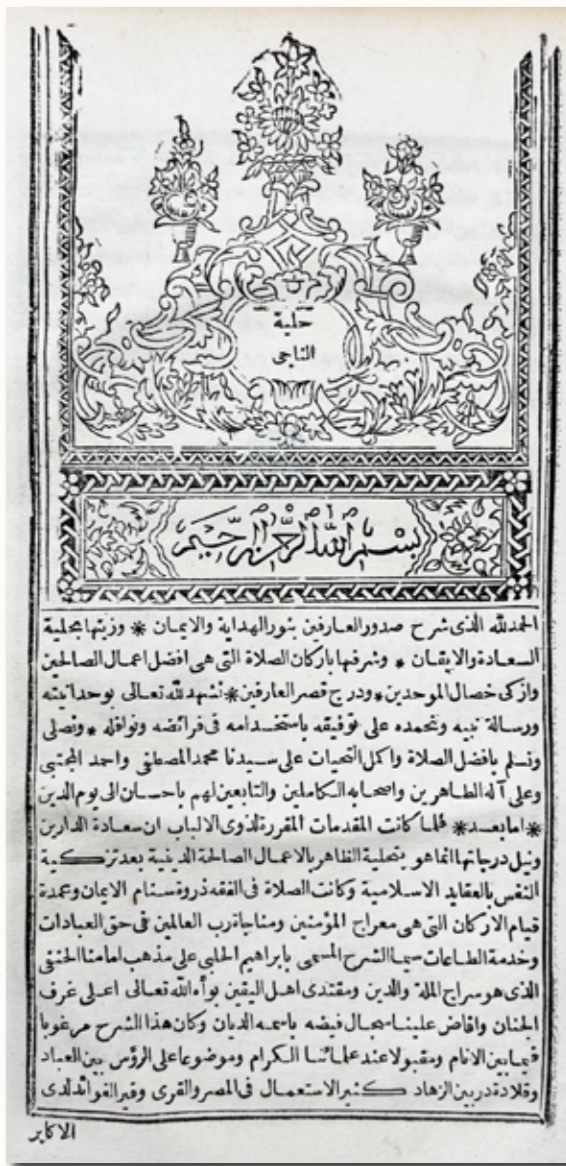 حلية
الناجى
بسم الله الرحمن الرحيم
الحمد لله الذى شرح صدور العارفين بنور الهداية والايمان * وزينها بحلية
السعادة والايقان * وشرفها باركان الصلاة التى هى افضل اعمال الصالحين
وازكى خصال الموحدين * ودرج قصر العارفين * نشهد لله تعالى بوحدانيته
ورسالة نبيه ونحمده على توفيقه باستخدامه فى فرائضه ونوافله * ونصلى
ونسلم بافضل الصلاة واكمل التحيات على سيدنا محمد المصطفى واحمد المجتبى
وعلى آله الطاهرين واصحابه الكاملين والتابعين لهم باحسان الى يوم الدين
* اما بعد * فلما كانت المقدمات المقررة لذوى الالباب ان سعادة الدارين
ونيل درجاتها انما هو بتحلية الظاهر بالاعمال الصالحة الدينية بعد تزكية
النفس بالعقايد الاسلامية وكانت الصلاة فى الفقه ذروة سنام الايمان وعمدة
قيام الاركان التى هى معراج المؤمنين ومناجاة رب العالمين فى حق العبادات
وخدمة الطاعات سيما الشرح المسمى بابراهيم الحلبى على مذهب امامنا الحنفى
الذى هو سراج الملة والدين ومقتدى اهل اليقين بوأه الله تعالى اعلى غرف
الجنان وافاض علينا سجال فيضه باسمه الديان وكان هذا الشرح مرغوبا
فيما بين الانام ومقبولا عند علمائنا الكرام وموضوعا على الرؤس بين العباد
وقلادة در بين الزهاد كثير الاستعمال فى المصر والقرى وفير الفوائد لدى
الاكابر